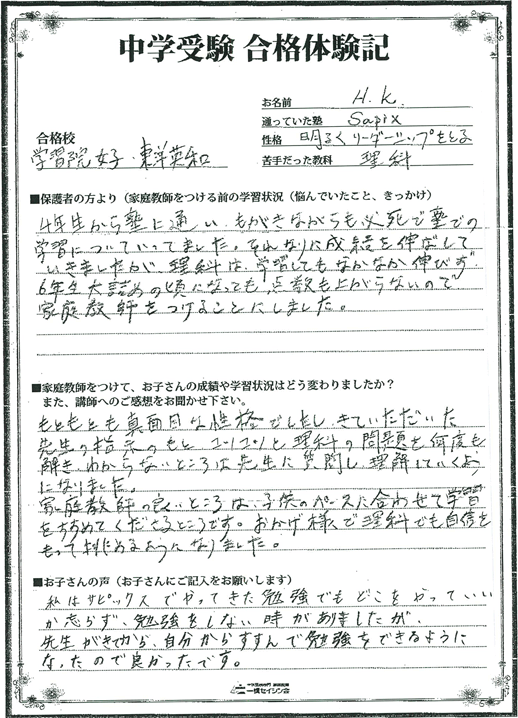 中学受験 合格体験記
お名前 H.K.
通っていた塾 Sapix
性格 明るくリーダーシップをとる
苦手だった教科 理科
合格校
学習院女子・東洋英和
■保護者の方より（家庭教師をつける前の学習状況（悩んでいたこと、きっかけ）
4年生から塾に通い、もがきながらも必死で塾での
学習についていってました。それなりに成績を伸ばして
いきましたが、理科は、学習してもなかなか伸びず
6年生大詰めの頃になっても点数も上がらないので
家庭教師をつけることにしました。
■家庭教師をつけて、お子さんの成績や学習状況はどう変わりましたか？
また、講師へのご感想をお聞かせ下さい。
もともとも真面目な性格でしたし、きていただいた
先生の指示のもと、コツコツと理科の問題を何度も
解き、わからないところは先生に質問し理解していくよう
になりました。
家庭教師の良いところは、子供のペースに合わせて学習
をすすめてくださるところです。おかげ様で理科でも自信を
もって挑めるようになりました。
■お子さんの声（お子さんにご記入をお願いします）
私はサピックスでやってきた勉強でもどこをやっていい
か志らず、勉強をしない時がありましたが、
先生がきてから、自分からすすんで勉強をできるように
なったので良かったです。
一橋セイシン会